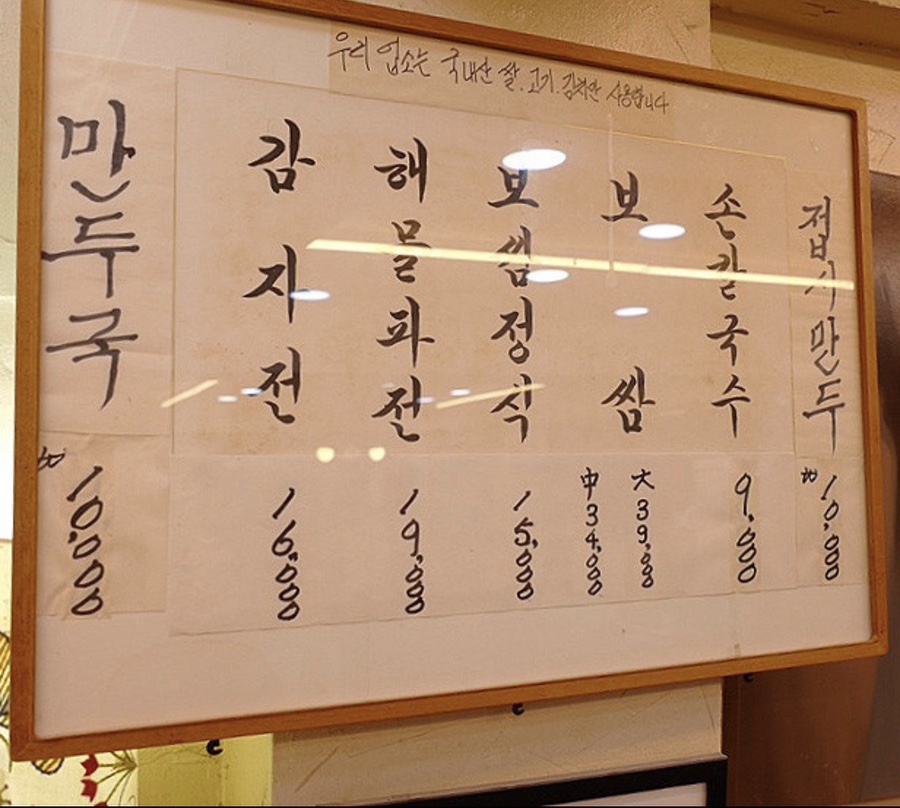 우리 업소는 국내산 쌀.고기.김치만 사용합니다
만두국
10,000
감자전
16,000
해물파전
19,000
보쌈정식
15,000
보쌈
中 34,000
大 39,000
손칼국수
9,000
접시만두
10,000